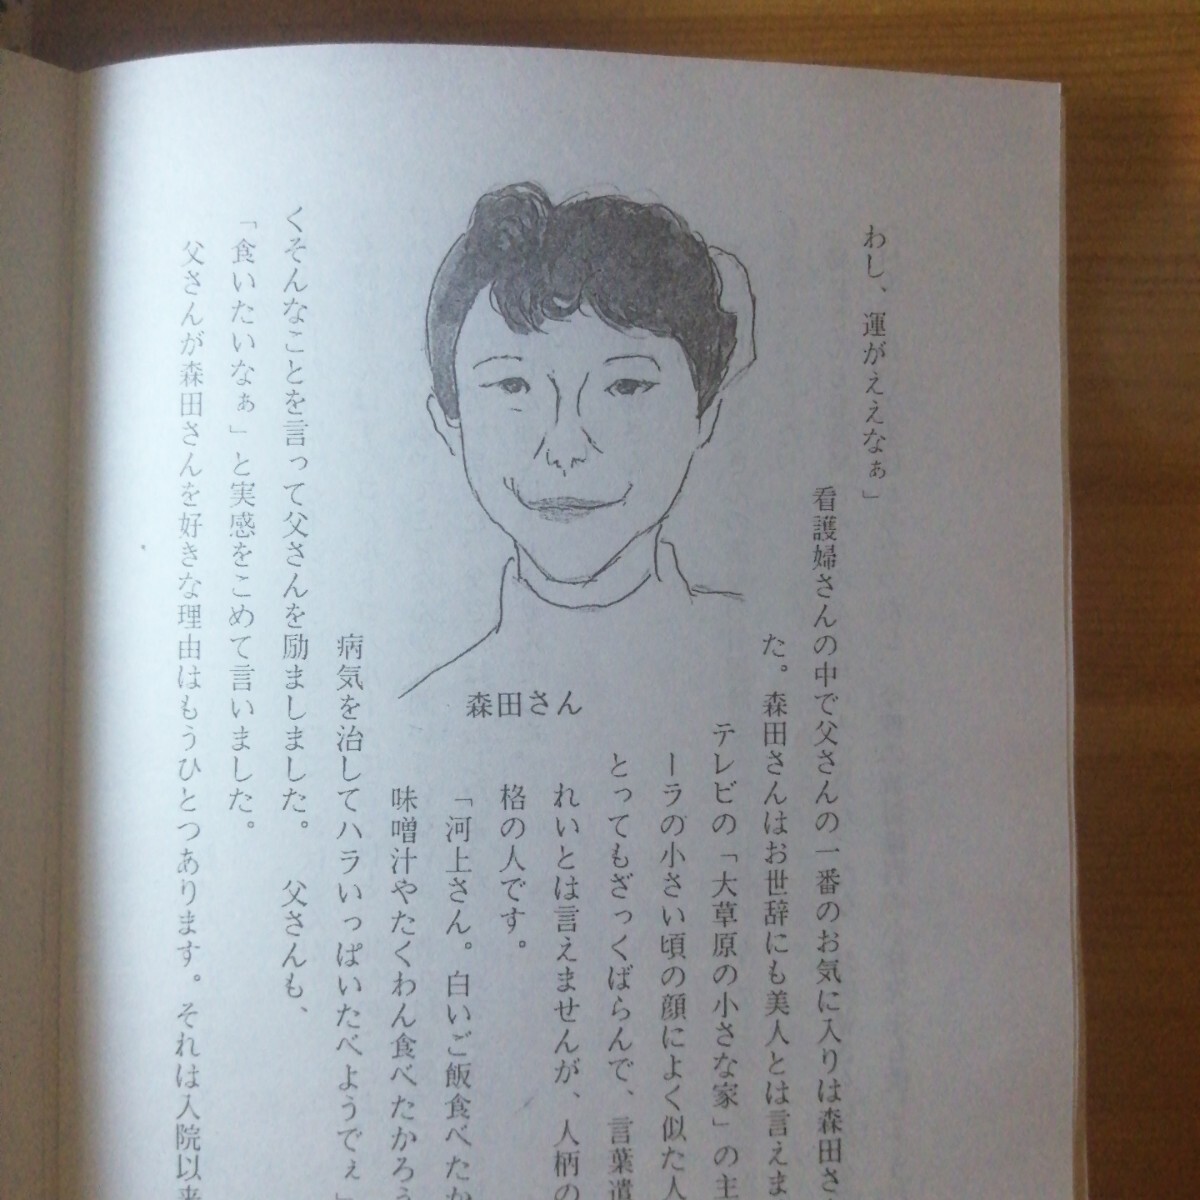 わし、運がええなぁ」
看護婦さんの中で父さんの一番のお気に入りは森田さ
た。森田さんはお世辞にも美人とは言えま
テレビの「大草原の小さな家」の主
ーラの小さい頃の顔によく似た人
とってもざっくばらんで、言葉遣
れいとは言えませんが、人柄の
格の人です。
「河上さん。白いご飯食べたか
味噌汁やたくわん食べたかろう
病気を治してハラいっぱいたべようでぇ」
くそんなことを言って父さんを励ましました。　父さんも、
「食いたいなぁ」と実感をこめて言いました。
父さんが森田さんを好きな理由はもうひとつあります。それは入院以来
森田さん